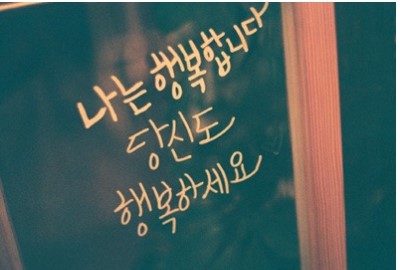 나는 행복합니다
당신도
행복하세요